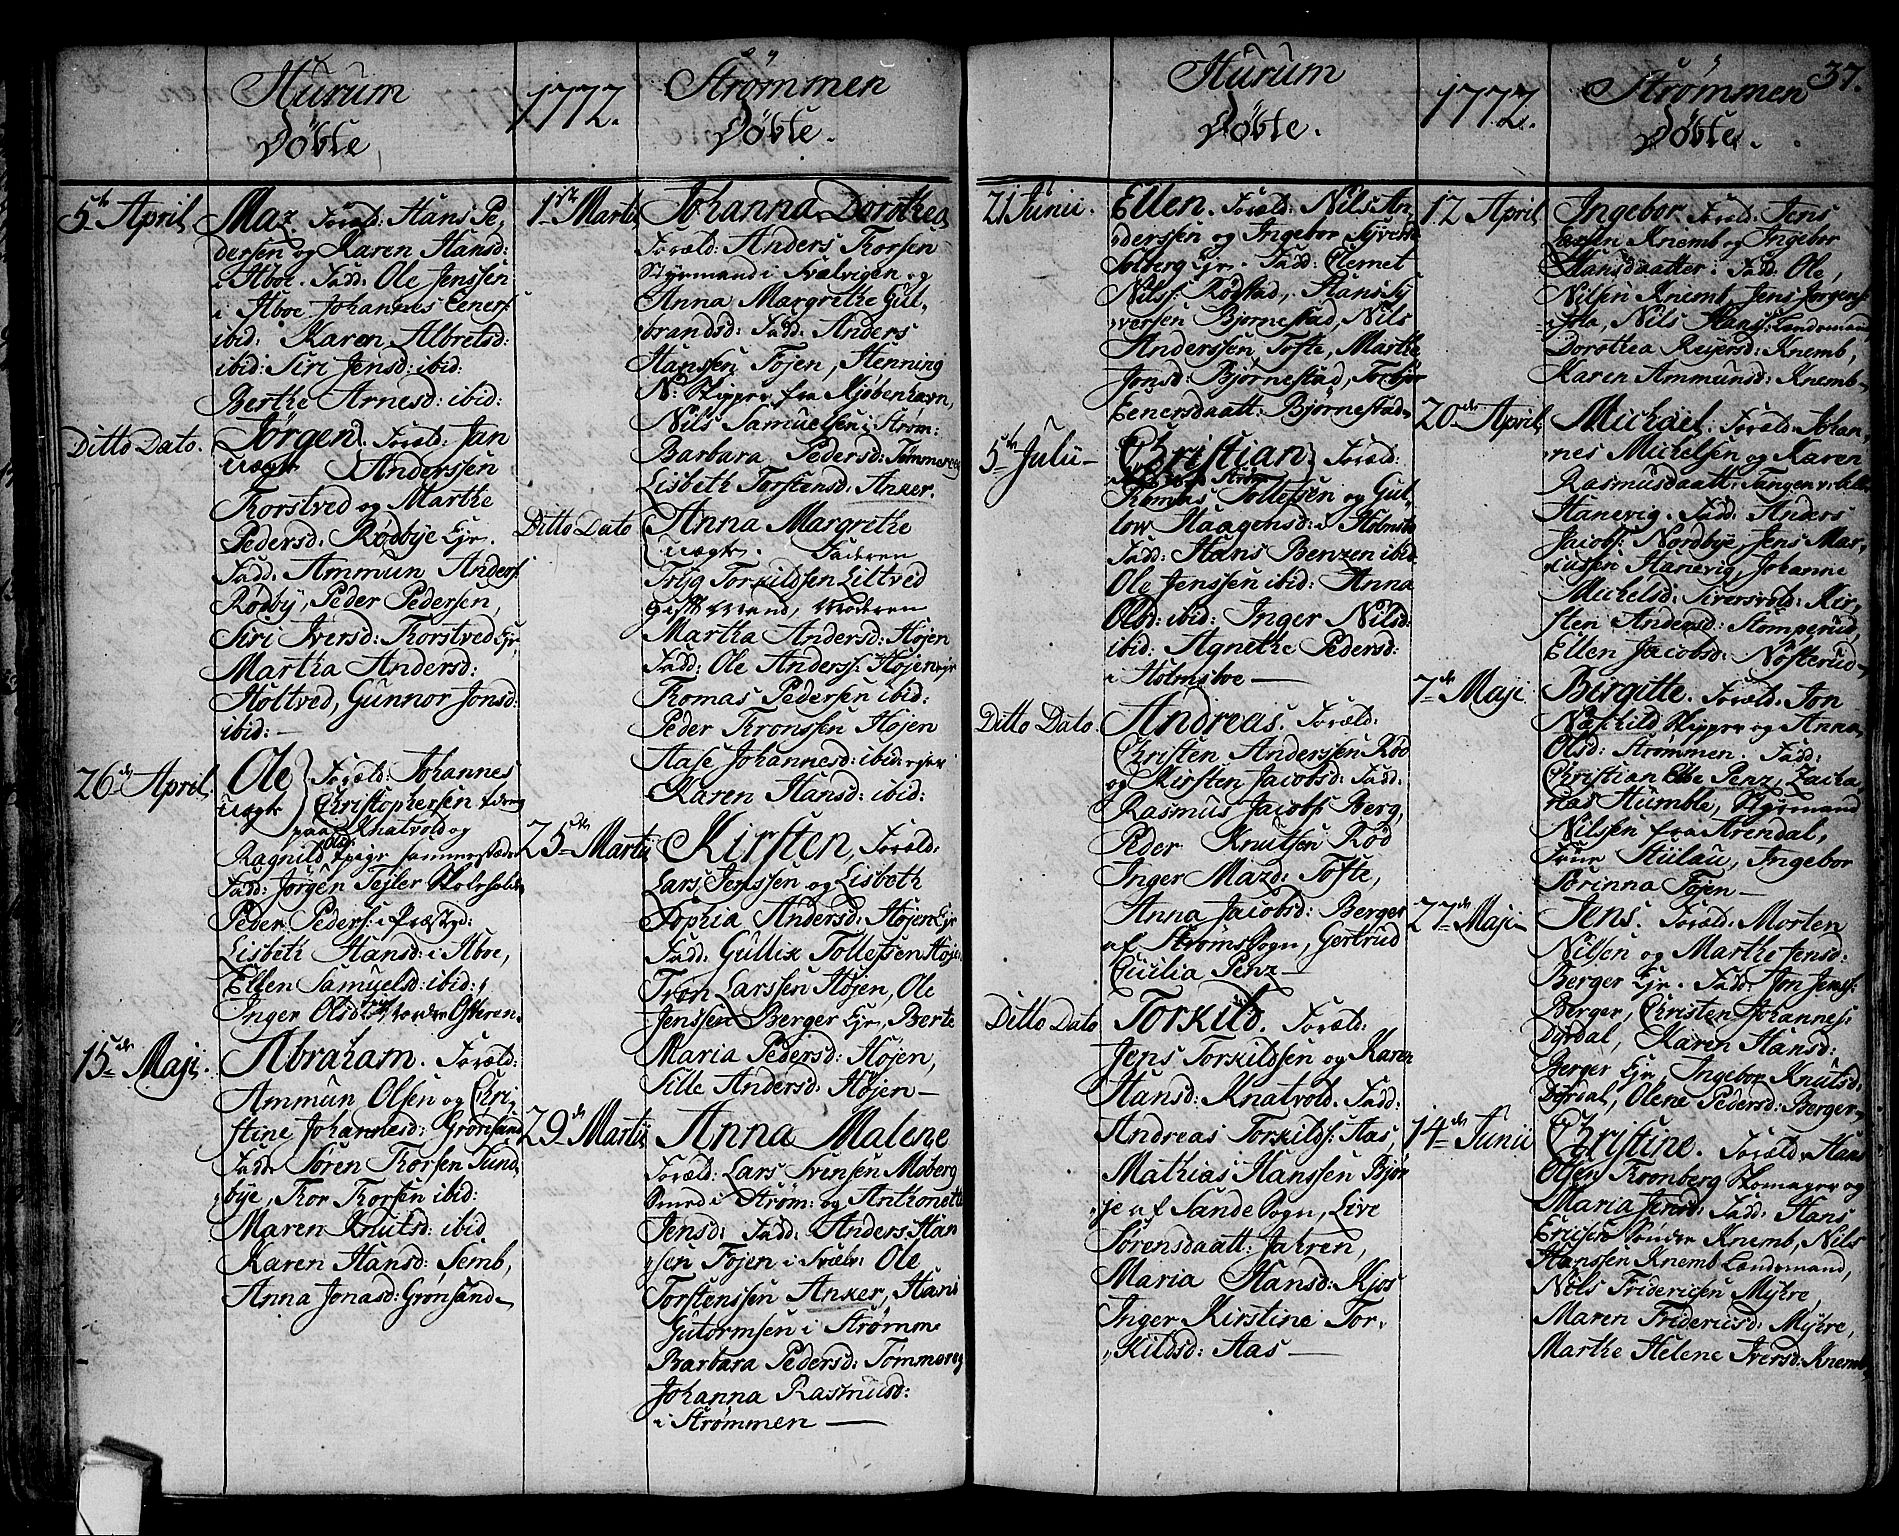 Hurum
Døbte
1772.
Strømmen
Døbte.
5te April
Maz. Foræld: Hans Pe-
dersen og Karen Hansd:
i Aboe. Fadd: Ole Jenssen
i Aboe Johannes Eeners:
ibid: Karen Albretsd:
ibid: Siri Jensd: ibid:
Berthe Arnesd: ibid:
Ditto Dato.
Jørgen Foræld: Jan
uægte Anderssen
Thorstved og Marthe
Pedersd: Rødbye Eje.
Fadd: Ammun Anders:
Rødby, Peder Pedersen,
Siri Iversd: Thorstved Eje,
Martha Andersd:
Holtved, Gunnor Jonsd:
ibid: —
26de April
Ole Foræld: Johannes
uægte Christophersen
paa Knatvold og
Ragnild Olsd:
Fadd: Jørgen Tejler Skoleholder
Peder Peders: i Præstgd:
Lisbeth Hansd: i Aboe,
Ellen Samuelsd: ibid:
Inger Olsd:
15de Maji.
Abraham. Foræld:
Ammun Olsen og Chri-
stine Johannesd: Grønsand
Fadd: Søren Thorsen Sund-
bye, Thor Thorsen ibid:
Maren Knutsd: ibid
Karen Hansd: Semb,
Anna Jonasd: Grønsand
1ste Martii
Johanna Dorothea
Foræld: Anders Thorsen
Styrmand i Svælvigen og
Anna Margrethe Gul-
brandsd: Fadd: Anders
Hanssen Føjen, Henning
N: Skipper fra Kjøbenhavn,
Nils Samuelsen i Strøm:
Barbara Pedersd: Tømmeraas
Lisbeth Torstensd: Anker.
Ditto Dato
Anna Margrethe
uægte. Faderen
Torkildsen Liltved
gift Mand, Moderen
Martha Andersd: Højen
Fadd: Ole Anders: Højen eje
Thomas Pedersen ibid:
Peder Thronssen Højen
Aase Johannesd: ibid: eje
Karen Hansd: ibid:
25de Martii
Kirsten, Foræld:
Lars Jenssen og Lisbeth
Sophia Andersd: Højen Eje
Fadd: Gullix Tollefsen Højen
Tron Larssen Højen, Ole
Jenssen Berger Eje, Berte
Maria Pedersd: Højen,
Sille Andersd: Højen —
29de Martii
Anna Malene
Foræld: Lars Svensen Moberg
Smed i Strøm: og Anthonette
Jensd: Fadd: Anders Han
sen Føjen i Svælv: Ole
Torstenssen Anker, Hans
Gutormsen i Strømm:
Barbara Pedersd: Tømmeraas
Johanna Rasmusd:
i Strømmen —
Hurum
Døbte.
1772.
Strømmen
Døbte.
37.
21 Junii.
Ellen. Foræld: Nils An-
derssen og Ingebor Syversd:
Solberg Eje. Fadd: Clemet
Nils: Rødstad, Hans Sy-
versen Bjørnestad, Nils
Anderssen Tofte, Marthe
Jonsd: Bjørnestad, Torbjør
Eenersdaatt: Bjørnestad
5te Julii
Christian Foræld:
Thomas Tollefsen og Gul-
low Haagensd: i Holmsboe
Fadd: Hans Benzen ibid
Ole Jenssen ibid: Anna
Olsd: ibid: Inger Nilsd:
ibid: Agnethe Pedersd:
i Holmsboe —
Ditto Dato.
Andreas. Foræld:
Christen Anderssen Rød
og Kirsten Jacobsd: Fadd:
Rasmus Jacobs: Berg,
Peder Knutsen Rød
Inger Mazd: Tofte,
Anna Jacobsd: Berger
af Strøms Sogn, Gertrud
Cicilia Penz —
Ditto Dato
Torkild. Foræld:
Jens Torkildsen og Karen
Hansd: Knatvold. Fadd:
Andreas Torkilds: Aas,
Mathias Hanssen Bjør
je af Sande Sogn, Live
Sørensdaatt: Jahren,
Maria Hansd: Kjos
Inger Kirstine Tor-
kildsd: Aas —
12 April
Ingebor Foræld: Jens
Larsen Knemb og Ingebor
Hansdaatter: Fadd: Ole
Nilsen Knemb, Jens Jørgens:
Sola, Nils Hans: Landsmand
Dorothea Reyersd: Knemb,
Karen Ammunsd: Knemb
20de April
Michael. Foræld: Johan-
nes Michelsen og Karen
Rasmusdaatt: Tangen v. Lille
Hanevig. Fadd: Anders
Jacobs: Nordbye, Jens Mar-
cussen Hanevig, Johanne
Michelsd: Siversvold: Kir-
sten Andersd: Stomperud,
Ellen Jacobsd: Nøsterud
7de Maji
Birgitte. Foræld: Jon
Naschild Skipper og Anna
Olsd: Strømmen. Fadd:
Christian Penz, Zacha-
rias Humble, Styrmand
Nilsen fra Arendal,
Frue Stülau, Ingebor
Sorinna Føjen —
27de Maji
Jens. Foræld: Morten
Nilsen og Marthe Jensd:
Berger Eje. Fadd: Jon Jens:
Berger, Christen Johannes:
Dyrdal, Karen Hansd:
Berger Eje, Ingebor Knutsd:
Dyrdal, Olene Pedersd: Berger
14de Junii
Christine. Foræld: Hans
Olsen Thronberg Skomager og
Maria Jensd: Fadd: Hans
Ericsen Søndre Knemb, Nils
Hanssen Knemb Landsmand,
Nils Fridericsen Myhre,
Maren Fridericsd: Myhre,
Marthe Helene Iversd: Knemb